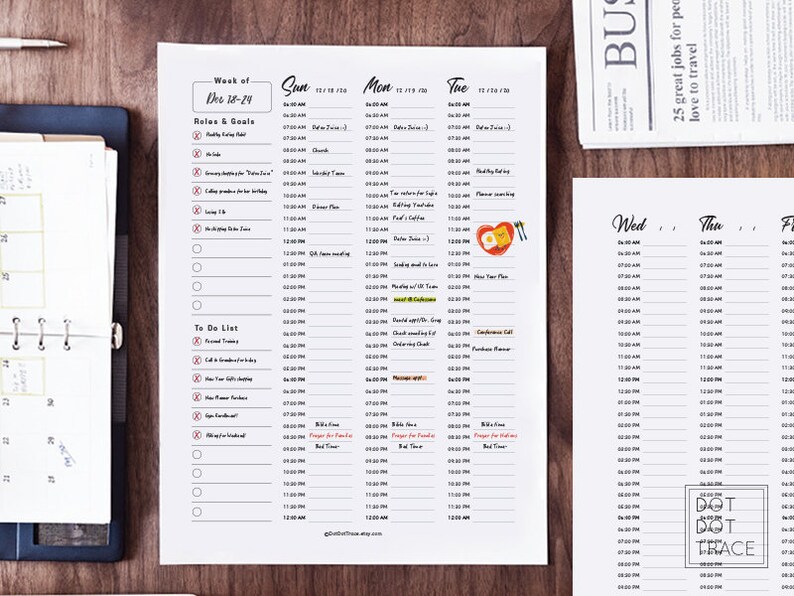 Week of
Dec 18-24
Roles & Goals
Healthy Eating Habit
No Soda
Grocery shopping for "Detox Juice"
Calling grandma for her birthday
Losing 5 lb
No skipping Detox Juice
To Do List
Personal Training
Call to Grandma for b-day
New Year Gifts shopping
New Planner Purchase
Gym Enrollment!
Hiking for Weekend!
Sun 12 / 18 / 20
06:00 AM
06:30 AM
07:00 AM Detox Juice :-)
07:30 AM
08:00 AM Church
08:30 AM
09:00 AM Worship Team
09:30 AM
10:00 AM
10:30 AM Dinner Plan
11:00 AM
11:30 AM
12:00 PM
12:30 PM QA team meeting
01:00 PM
01:30 PM
02:00 PM
02:30 PM
03:00 PM
03:30 PM
04:00 PM
04:30 PM
05:00 PM
05:30 PM
06:00 PM
06:30 PM
07:00 PM
07:30 PM
08:00 PM Bible time
08:30 PM Prayer for Families
09:00 PM Bed Time~
09:30 PM
10:00 PM
10:30 PM
11:00 PM
11:30 PM
12:00 AM
Mon 12 / 19 / 20
06:00 AM
06:30 AM
07:00 AM Detox Juice :-)
07:30 AM
08:00 AM
08:30 AM
09:00 AM
09:30 AM
10:00 AM Tax return for Sofia
10:30 AM Editing Youtube
11:00 AM Paul's Coffee
11:30 AM
12:00 PM Detox Juice :-)
12:30 PM
01:00 PM Sending email to Lora
01:30 PM
02:00 PM Meeting w/ UX Team
02:30 PM meet @ Cafesome
03:00 PM
03:30 PM Dental appt/Dr. Greg
04:00 PM Check emailing list
04:30 PM Ordering Check
05:00 PM
05:30 PM
06:00 PM Massage appt.
06:30 PM
07:00 PM
07:30 PM
08:00 PM Bible time
08:30 PM Prayer for Families
09:00 PM Bed Time~
09:30 PM
10:00 PM
10:30 PM
11:00 PM
11:30 PM
12:00 AM
Tue 12 / 20 / 20
06:00 AM
06:30 AM
07:00 AM Detox Juice :-)
07:30 AM
08:00 AM
08:30 AM
09:00 AM Healthy Eating
09:30 AM
10:00 AM Planner searching
10:30 AM
11:00 AM
11:30 AM
12:00 PM
12:30 PM
01:00 PM
01:30 PM New Year Plan
02:00 PM
02:30 PM
03:00 PM
03:30 PM
04:00 PM Conference Call
04:30 PM Purchase Planner
05:00 PM
05:30 PM
06:00 PM
06:30 PM
07:00 PM
07:30 PM
08:00 PM Bible time
08:30 PM Prayer for Nations
09:00 PM Bed Time~
09:30 PM
10:00 PM
10:30 PM
11:00 PM
11:30 PM
12:00 AM
©DotDotTrace.etsy.com
BUS
25 great jobs for peo
love to travel
Wed / /
06:00 AM
06:30 AM
07:00 AM
07:30 AM
08:00 AM
08:30 AM
09:00 AM
09:30 AM
10:00 AM
10:30 AM
11:00 AM
11:30 AM
12:00 PM
12:30 PM
01:00 PM
01:30 PM
02:00 PM
02:30 PM
03:00 PM
03:30 PM
04:00 PM
04:30 PM
05:00 PM
05:30 PM
06:00 PM
06:30 PM
07:00 PM
07:30 PM
08:00 PM
08:30 PM
09:00 PM
Thu / /
06:00 AM
06:30 AM
07:00 AM
07:30 AM
08:00 AM
08:30 AM
09:00 AM
09:30 AM
10:00 AM
10:30 AM
11:00 AM
11:30 AM
12:00 PM
12:30 PM
01:00 PM
01:30 PM
02:00 PM
02:30 PM
03:00 PM
03:30 PM
04:00 PM
04:30 PM
05:00 PM
05:30 PM
06:00 PM
06:30 PM
07:00 PM
07:30 PM
08:00 PM
08:30 PM
09:00 PM
DOT
DOT
TRACE
27
25
26
23
24
30
21
28